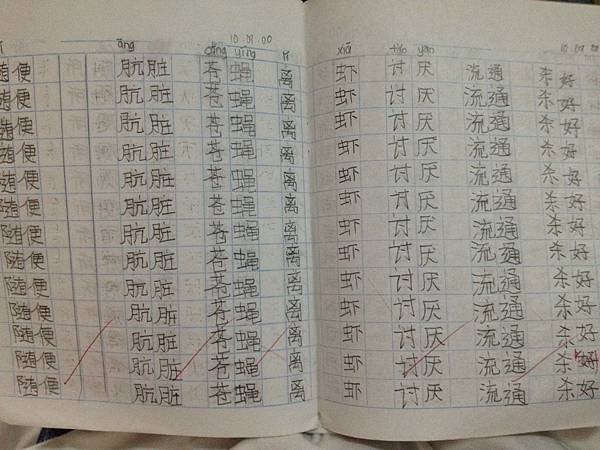 āng cāng yíng lí
随便 肮脏 苍蝇 离
随便 肮脏 苍蝇 离
随便 肮脏 苍蝇 离
随便 肮脏 苍蝇 离
随便 肮脏 苍蝇 离
随便 肮脏 苍蝇 离
随便 肮脏 苍蝇 离
随便 肮脏 苍蝇 离
随便 肮脏 苍蝇 离
随便 肮脏 苍蝇 离
随便 肮脏 苍蝇 离
随便 肮脏 苍蝇 离
随便 肮脏 苍蝇 离
xiā tǎo yàn
虾 讨厌 流通 杀好
虾 讨厌 流通 杀好
虾 讨厌 流通 杀好
虾 讨厌 流通 杀好
虾 讨厌 流通 杀好
虾 讨厌 流通 杀好
虾 讨厌 流通 杀好
虾 讨厌 流通 杀好
虾 讨厌 流通 杀好
虾 讨厌 流通 杀好
虾 讨厌 流通 杀好
虾 讨厌 流通 杀好
虾 讨厌 流通 杀好